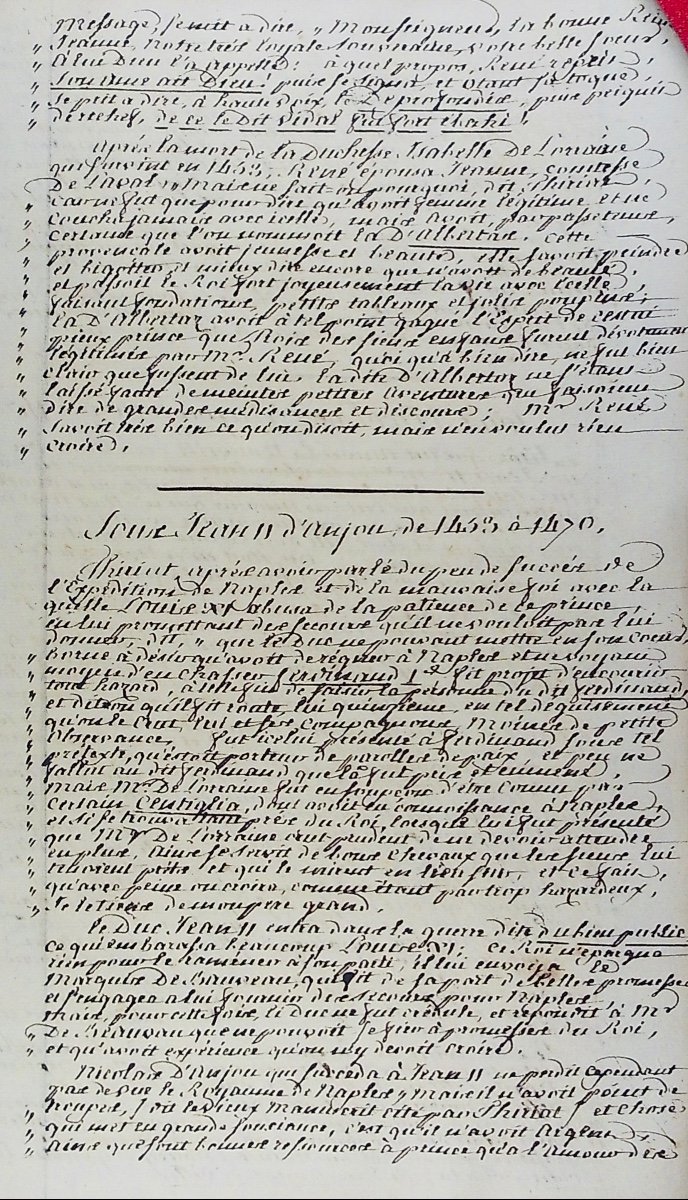 message, se mit a dire, " Monseigneur, la bonne Reine
" Jeanne, notre très loyale souveraine, votre belle sœur,
" à lui Dieu l'a appellée: à quel propos, René reprit,
" son ame ait Dieu! puis se signa, et otant sa toque,
" se prit a dire, à haute voix, le De profondis, puis se quit
" derechef, de ce le Dit Vidal fut fort ébahi!
après la mort de la Duchesse Isabelle De Lorraine
qui survint en 1453, René épousa Jeanne, comtesse
De Laval, " Mais ne sait-on pourquoi, dit Thiriat,
" car ne fut que pour dire qu'avoit femme légitime et ne
" coucha jamais avec icelle, mais avoit, par passetems,
" certaine que l'on nommoit la D'Albertas. cette
" provençale avoit jeunesse et beauté, elle savoit peindre
" et bigotter, et mieux dire encore que n'avoit de beauté,
" et passoit le Roi fort joyeusement la vie avec icelle
" faisant fondations, petits tableaux et jolis poupins;
" la D'Albertas avoit à tel point gagné l'Esprit de cestui
" pieux prince que trois des siens enfans furent dévotement
" légitimés par Mr. René, quoi qu'à bien dire, ne fut bien
" clair que fussent de lui. la dite D'Albertas ne s'étant
" laissé faute de maintes petites aventures qui faisoient
" dire de grandes médisances et discours; Mr René
" savoit très bien ce qu'on disoit, mais n'en voulut rien
" croire.
Sous Jean II d'Anjou, de 1453 à 1470.
Thiriat, après avoir parlé du peu de succès de
l'Expédition de Naples et de la mauvaise foi avec la
quelle Louis XI abusa de la patience de ce prince,
en lui promettant des secours qu'il ne vouloit pas lui
donner, dit, " que le Duc ne pouvant mettre en son cœur,
" borne à désir qu'avoit de régner à Naples et ne voyant
" moyen d'en chasser Ferdinand 1er fit projet d'encourir
" tout hazard, à telle fin de saisir la personne du dit Ferdinand,
" et dit-on qu'il fit route, lui quinzième, en tel déguisement
" qu'on le crut, lui et ses compagnons, Moines de petite
" observance, fut icelui présenté à Ferdinand sous tel
" prétexte, qu'étoit porteur de parolles de paix, et peu ne
" fallut au dit Ferdinand que là fut pris et emmené,
" mais Mr De Lorraine fut en soupçon d'être connu par
" certain Centiglia, dont avoit eu connoissance à Naples,
" et si se trouva tant près du Roi, lorsque lui fut présenté
" que Mgr De Lorraine crut prudent de ne devoir attendre
" en plus, ains se servit de bons chevaux que les siens lui
" tenoient prêts, et qui le mirent en lieu sur, et ce fait,
" qu'avec peine on croira, comme étant par trop hazardeux,
" Je le tiens de mon père grand.
le Duc Jean II entra dans la guerre dite du bien public
ce qui embarassa beaucoup Louis XI; Ce Roi n'épargna
rien pour le ramener à son parti, il lui envoya le
Marquis De Bauveau, qui fit de sa part de belles promesses
et s'engagea a lui fournir des secours pour Naples
Mais, pour cette fois, le Duc ne fut crédule, et répondit à Mr
" De Beauvau que ne pouvoit se fier à promesses du Roi,
" et qu'avoit expérience qu'on n'y devoit croire.
Nicolas D'Anjou qui succéda à Jean II ne perdit cependant
pas de vue le Royaume de Naples " mais il n'avoit point de
" troupes, (dit le vieux Manuscrit cité par Thiriat) et chose
" qui met en grande souciance, c'est qu'il n'avoit Argent,
" ains que sont bonnes ressources à prince qu'a l'amour des